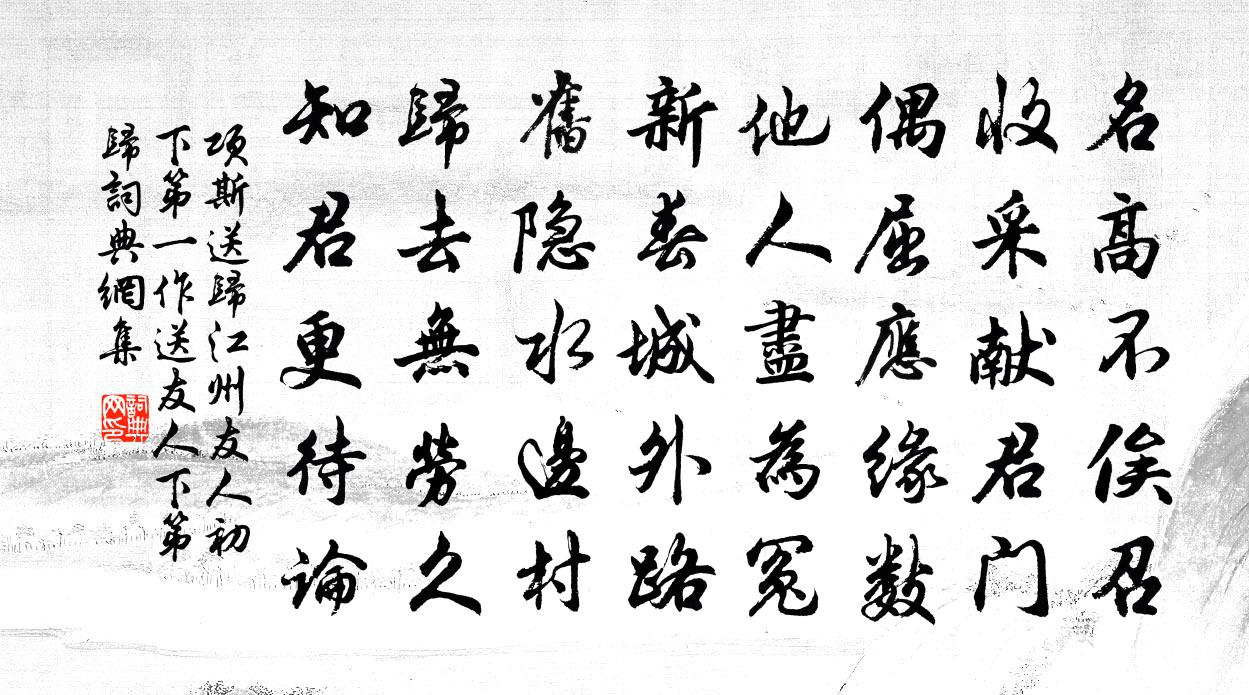 名高不俟召
收采獻君門
偶屈應緣數
他人盡為冤
新春城外路
舊隱水邊村
歸去無勞久
知君更待論
項斯送歸江州友人初
下第一作送友人下第
歸詞典網集
詞典
网印